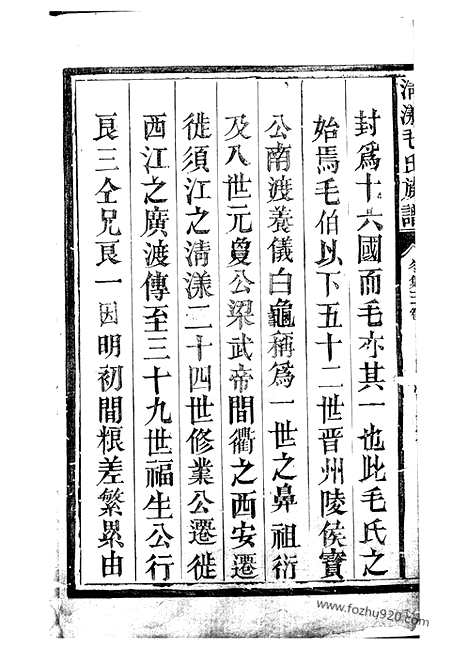 清漾毛氏族譜
封爲十六國而毛亦其一也此毛氏之
始焉毛伯以下五十二世晋州陵侯寳
公南渡養儀白龜稱爲一世之鼻祖衍
及八世元㚖公梁武帝間衢之西安遷
徙須江之清漾二十四世修業公遷徙
西江之廣渡傳至三十九世福生公行
良三仝兄良一因明初間粮差繁累由
www.fozhu920.com